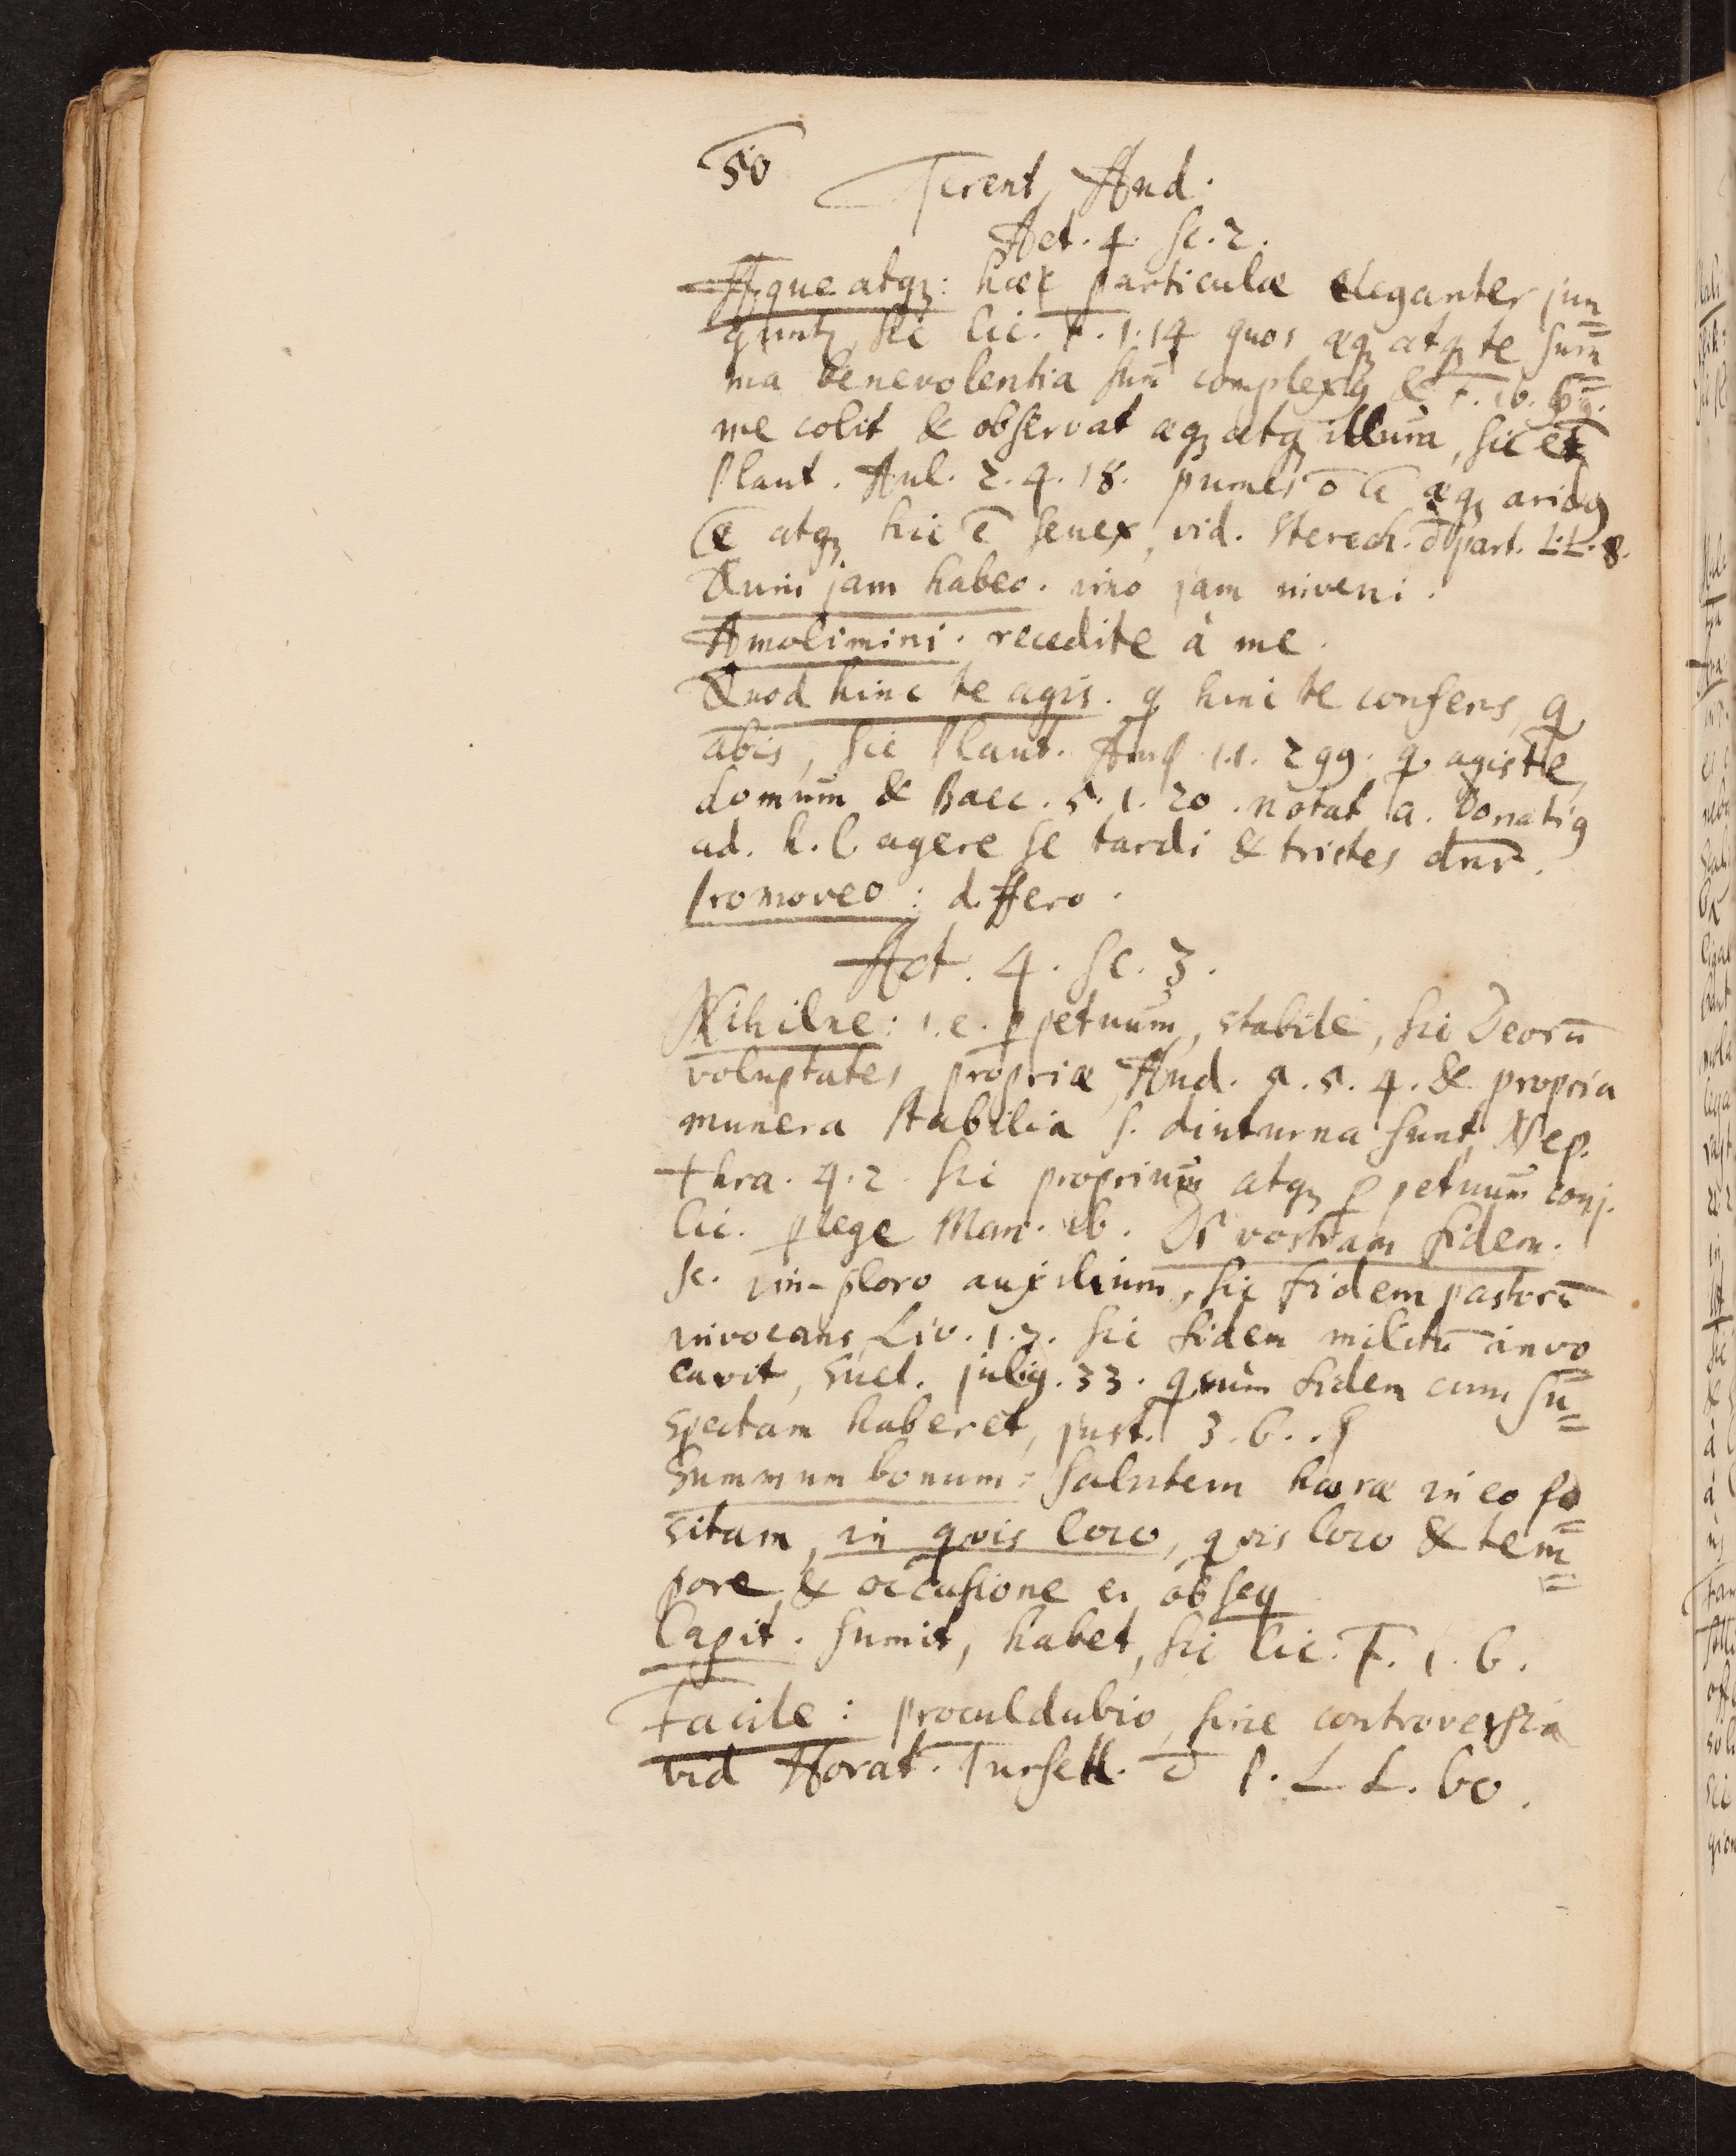 50
Terent, And.
Act. 4. Sc. 2.
Æque atq3: hæc particulæ eleganter jun=
guntr, sic Cic. F. 1. 14 quos æq3 atq3 te sum=
ma benevolentia sum̄ complexq & F. 16.
me colit & observat æq3 atq3 illum, sic et
Plaut. Aul. 2. 4. 18. pumex ō ē æq3 aridq
ē atq3 hic ē senex, vid. Sterech. d part. L. L. 8.
Quin jam habeo. imo jam inveni.
Amolimini. recedite à me.
Quod hinc te agis. q hinc te conferis, q
abis, sic Plaut. Amp 1. 1. 299. q agis te,
domum & Bacc. 5. 1. 20. notat a. Donatiq
ad. h. l. agere se tardi & tristes dnr.
Promoveo: differo.
Act. 4. Sc. 3.
Nihilne: i. e. ppetuum, stabile, sic Deorū
voluptates propriæ, And. 5. 5. 4. & propria
munera stabilia s. diuturna sunt, Nep.
Thra. 4. 2. sic proprium atq3 ppetuum conj.
Cic. p lege Man. 16. Di vostram fidem.
sc. im-ploro auxilium, sic fidem pastorū
invocans, Liv. 1. 7. sic fidem militū invo
cavit, Suet. juliq. 33. fidem cum su=
spectam haberet, just. 3. 6.
Summum bonum: salutem heræ in eo po=
sitam, in qvis loco, qvis loco & tem=
pore & occasione ei obseq
Capit. sumit, habet, sic Cic. F. 1. 6.
Facile: proculdubio, sine controversia
vid Horat. Tursell. d P. L L. 60.